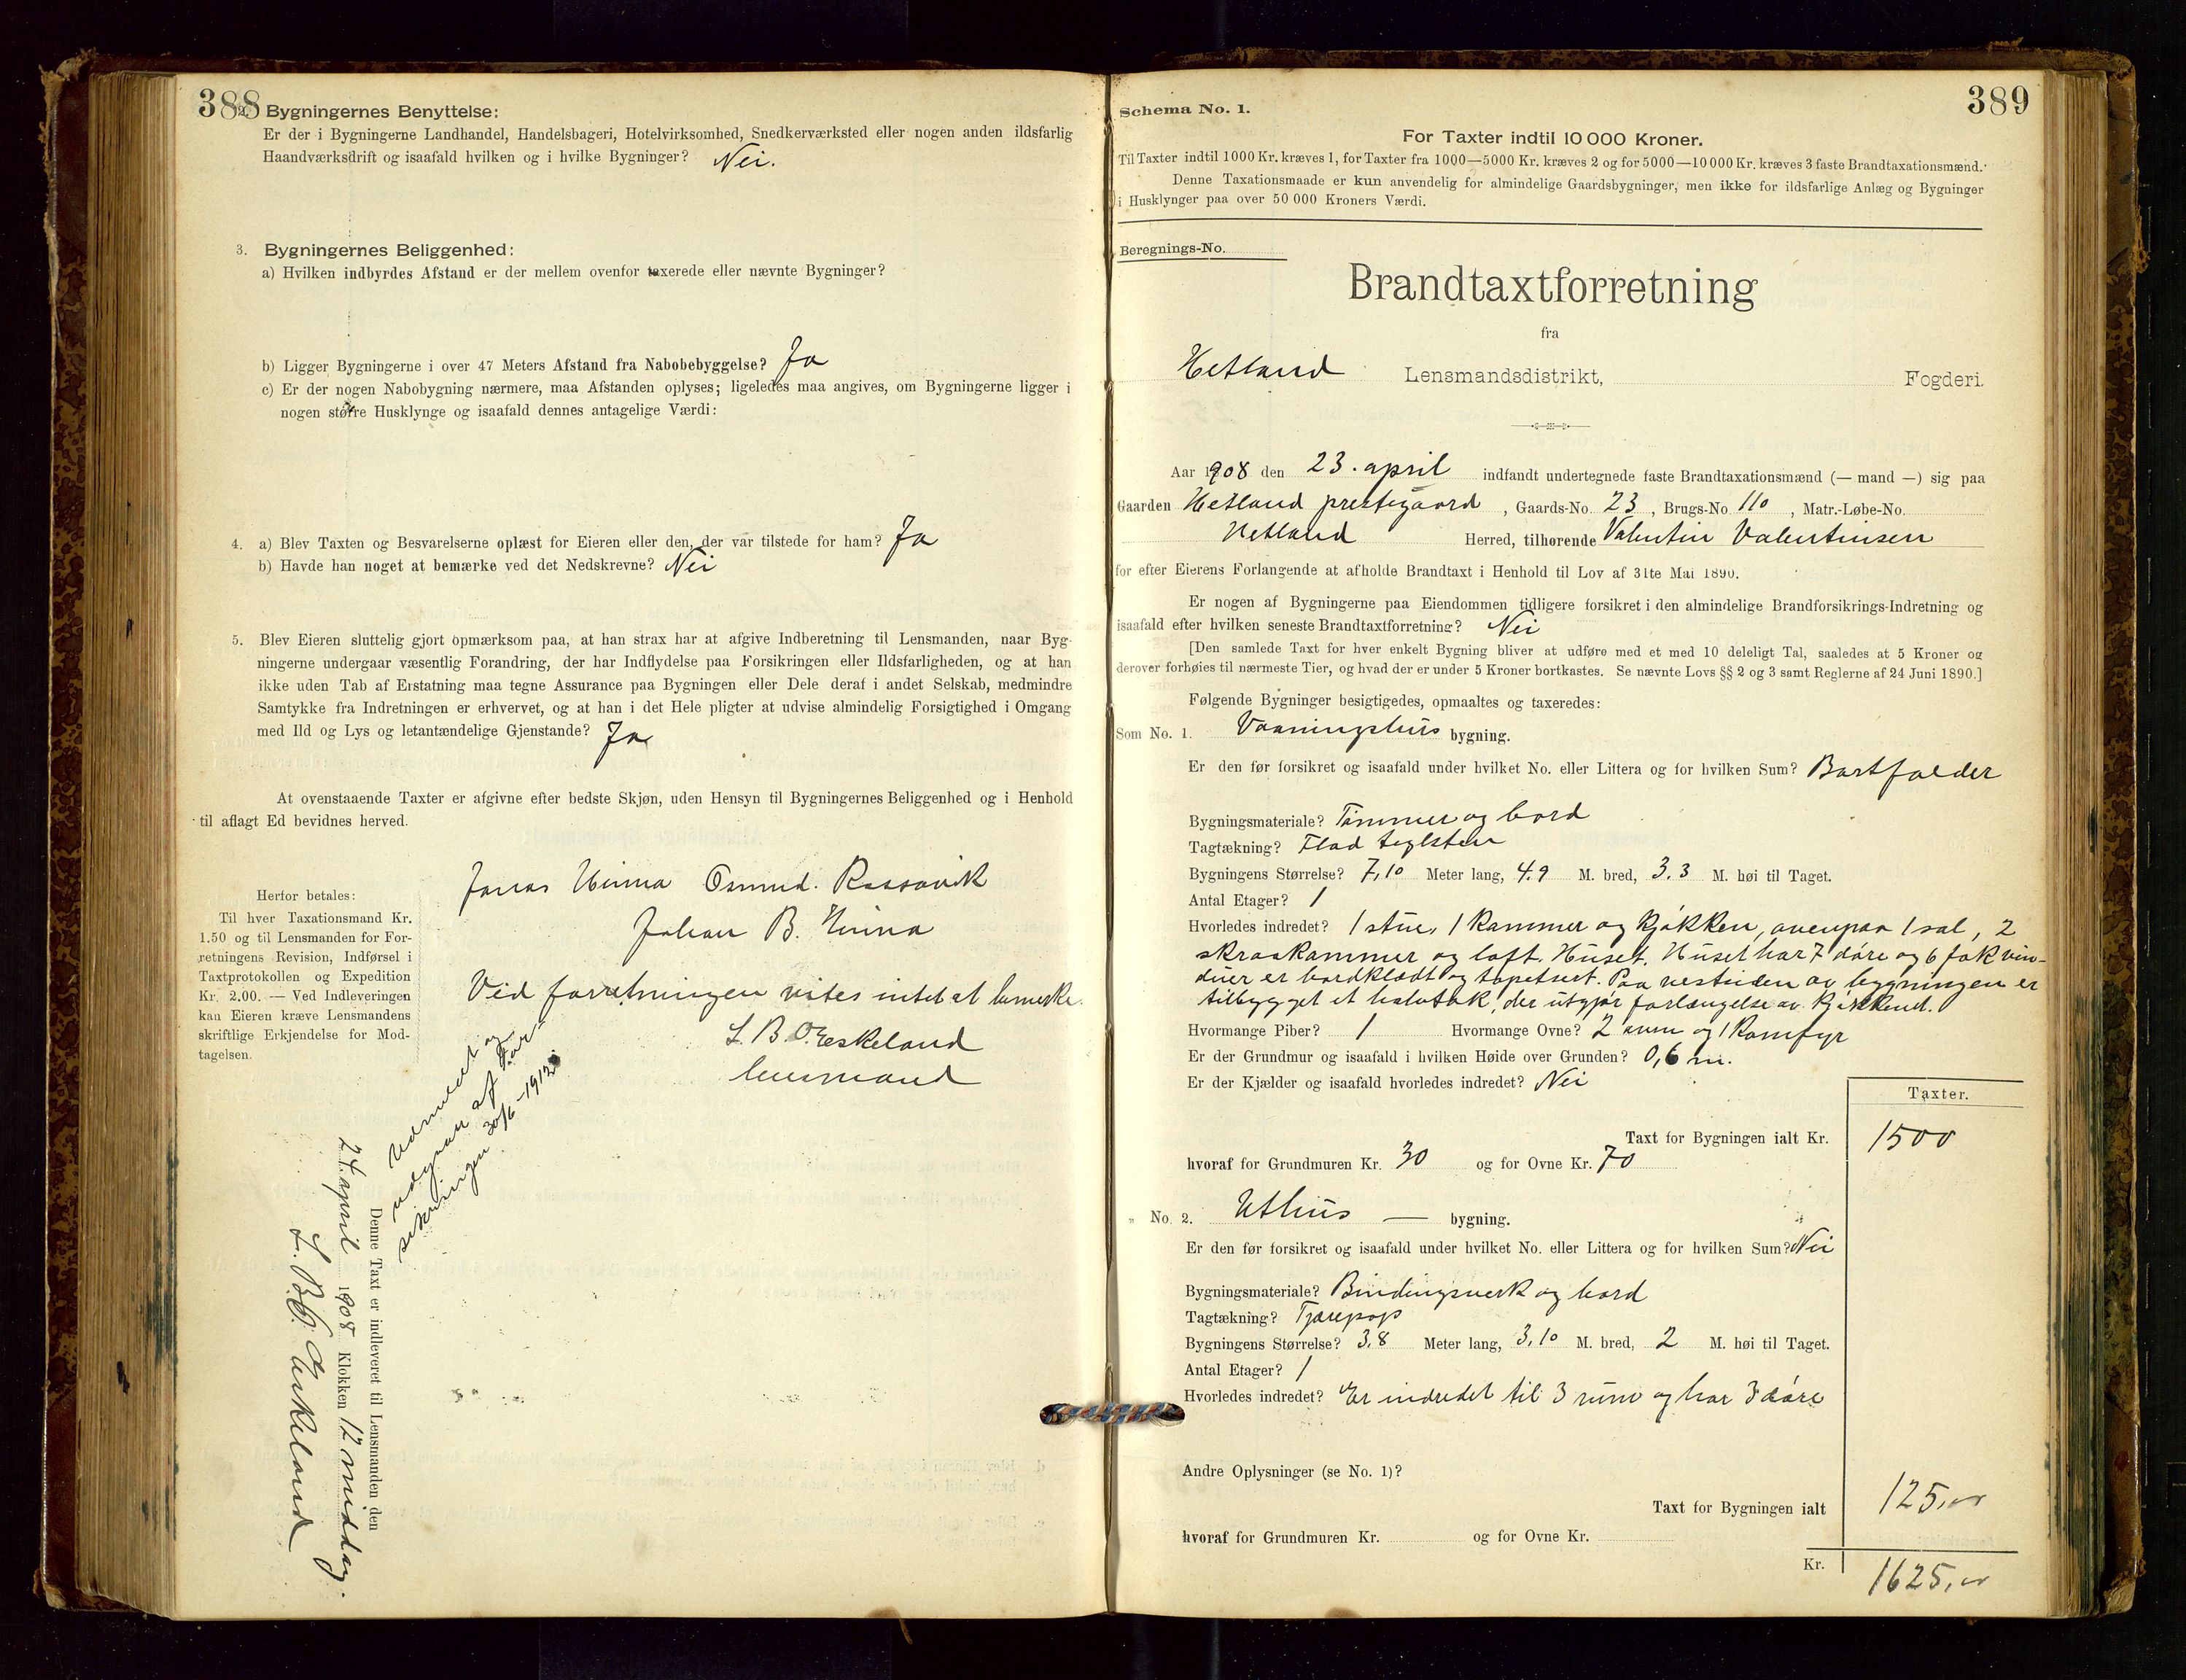 388
2. Bygningernes Benyttelse:
Er der i Bygningerne Landhandel, Handelsbageri, Hotelvirksomhed, Snedkerværksted eller nogen anden ildsfarlig
Haandværksdrift og isaafald hvilken og i hvilke Bygninger? Nei.
3. Bygningernes Beliggenhed:
a) Hvilken indbyrdes Afstand er der mellem ovenfor taxerede eller nævnte Bygninger?
b) Ligger Bygningerne i over 47 Meters Afstand fra Nabobebyggelse? Ja
c) Er der nogen Nabobygning nærmere, maa Afstanden oplyses; ligeledes maa angives, om Bygningerne ligger i
nogen større Husklynge og isaafald dennes antagelige Værdi:
4. a) Blev Taxten og Besvarelserne oplæst for Eieren eller den, der var tilstede for ham? Ja
b) Havde han noget at bemærke ved det Nedskrevne? Nei
5. Blev Eieren sluttelig gjort opmærksom paa, at han strax har at afgive Indberetning til Lensmanden, naar Byg-
ningerne undergaar væsentlig Forandring, der har Indflydelse paa Forsikringen eller Ildsfarligheden, og at han
ikke uden Tab af Erstatning maa tegne Assurance paa Bygningen eller Dele deraf i andet Selskab, medmindre
Samtykke fra Indretningen er erhvervet, og at han i det Hele pligter at udvise almindelig Forsigtighed i Omgang
med Ild og Lys og letantændelige Gjenstande? Ja
At ovenstaaende Taxter er afgivne efter bedste Skjøn, uden Hensyn til Bygningernes Beliggenhed og i Henhold
til aflagt Ed bevidnes herved.
Jonas Hinna Osmund. Rossavik
Johan B. Hinna
Herfor betales:
Til hver Taxationsmand Kr.
1.50 og til Lensmanden for For-
retningens Revision, Indførsel i
Taxtprotokollen og Expedition
Kr. 2.00. — Ved Indleveringen
kan Eieren kræve Lensmandens
skriftlige Erkjendelse for Mod-
tagelsen.
Ved forretningen vites intet at bemerke.
L. B. O. Eskeland
lensmand
Udmeldt og
udgaar af For-
sikringen 30/6-1912
Denne Taxt er indleveret til Lensmanden den
24 april 1908 Klokken 12 middag.
L. B. O. Eskeland
389
Schema No. 1.
For Taxter indtil 10 000 Kroner.
Til Taxter indtil 1000 Kr. kræves 1, for Taxter fra 1000—5000 Kr. kræves 2 og for 5000—10 000 Kr. kræves 3 faste Brandtaxationsmænd.
Denne Taxationsmaade er kun anvendelig for almindelige Gaardsbygninger, men ikke for ildsfarlige Anlæg og Bygninger
i Husklynger paa over 50 000 Kroners Værdi.
Beregnings-No.
Brandtaxtforretning
fra
Hetland Lensmandsdistrikt, Fogderi.
Aar 1908 den 23. april indfandt undertegnede faste Brandtaxationsmænd (— mand —) sig paa
Gaarden Hetland prestegaard, Gaards-No. 23, Brugs-No. 110, Matr.-Løbe-No.
Hetland Herred, tilhørende Valentin Valentinsen
for efter Eierens Forlangende at afholde Brandtaxt i Henhold til Lov af 31te Mai 1890.
Er nogen af Bygningerne paa Eiendommen tidligere forsikret i den almindelige Brandforsikrings-Indretning og
isaafald efter hvilken seneste Brandtaxtforretning? Nei
[Den samlede Taxt for hver enkelt Bygning bliver at udføre med et med 10 deleligt Tal, saaledes at 5 Kroner og
derover forhøies til nærmeste Tier, og hvad der er under 5 Kroner bortkastes. Se nævnte Lovs §§ 2 og 3 samt Reglerne af 24 Juni 1890.]
Følgende Bygninger besigtigedes, opmaaltes og taxeredes:
Som No. 1. Vaaningshus bygning.
Er den før forsikret og isaafald under hvilket No. eller Littera og for hvilken Sum? Bortfalder
Bygningsmateriale? Tømmer og bord
Tagtækning? Flad teglsten
Bygningens Størrelse? 7,10 Meter lang, 4.9 M. bred, 3.3 M. høi til Taget.
Antal Etager? 1
Hvorledes indredet? 1 stue, 1 kammer og kjøkken, ovenpaa 1 sal, 2
skraakammer og loft. Huset. Huset har 7 døre og 6 fak vin-
duer er bordklædt og tapetsert. Paa vestsiden av bygningen er
tilbygget et halvtak, der utgjør forlængelse av kjøkkenet.
Hvormange Piber? 1 Hvormange Ovne? 2 ovne og 1 Komfyr
Er der Grundmur og isaafald i hvilken Høide over Grunden? 0,6 m.
Er der Kjælder og isaafald hvorledes indredet? Nei
Taxter.
Taxt for Bygningen ialt Kr. 1500
hvoraf for Grundmuren Kr. 30 og for Ovne Kr. 70
" No. 2. Uthus — bygning.
Er den før forsikret og isaafald under hvilket No. eller Littera og for hvilken Sum? Nei
Bygningsmateriale? Bindingsverk og bord
Tagtækning? Tjærepap
Bygningens Størrelse? 3.8 Meter lang, 3,10 M. bred, 2 M. høi til Taget.
Antal Etager? 1
Hvorledes indredet? Er indredet til 3 rum og har 3 døre
Andre Oplysninger (se No. 1)?
Taxt for Bygningen ialt 125,00
hvoraf for Grundmuren Kr. og for Ovne Kr.
Kr. 1625,00